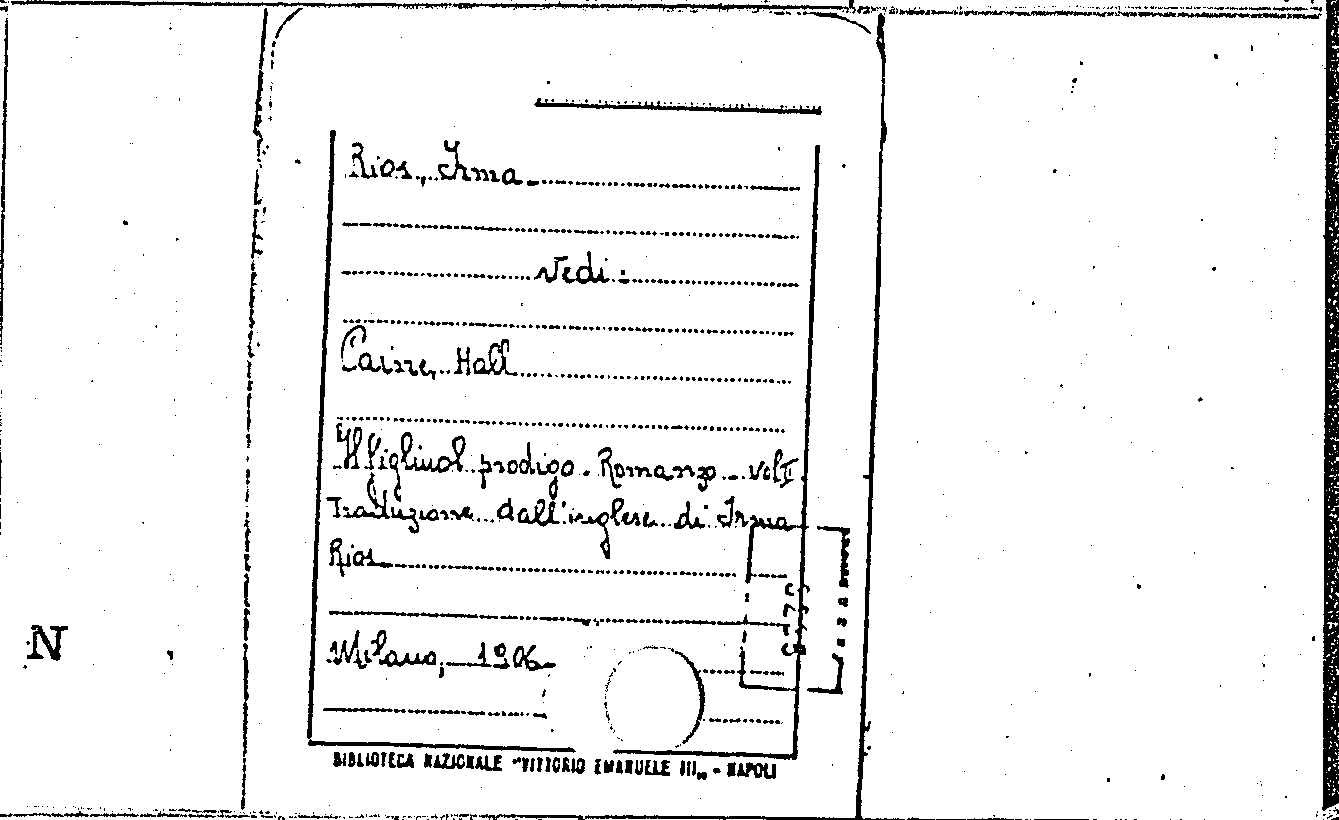 Rios, Irma
Vedi:
Caine, Hall
Il figliuol prodigo. Romanzo. vol I.
Traduzione dall'inglese di Irma
Rios
Milano, 1906
N
BIBLIOTECA NAZIONALE "VITTORIO EMANUELE III„ - NAPOLI